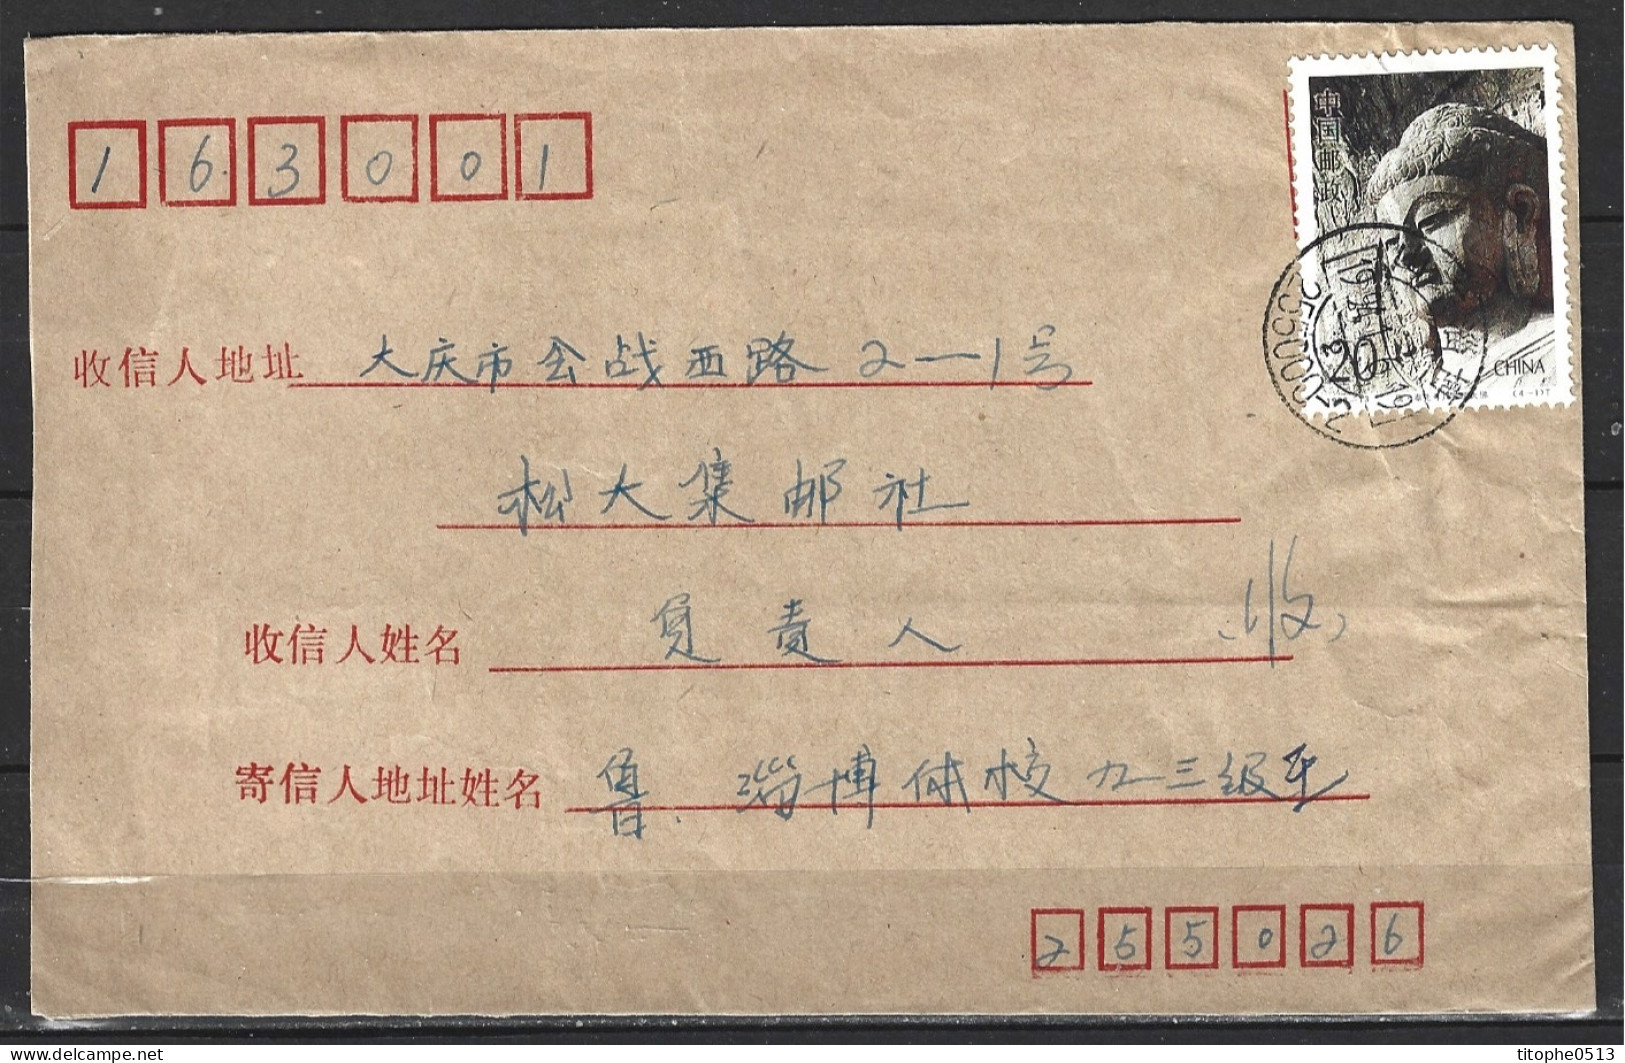 163001
中国邮政
20
CHINA
收信人地址 大庆市会战西路2—1号
松大集邮社
收信人姓名 负责人 (收)
寄信人地址姓名 鲁.淄博体校九三级
255026
titophe0513